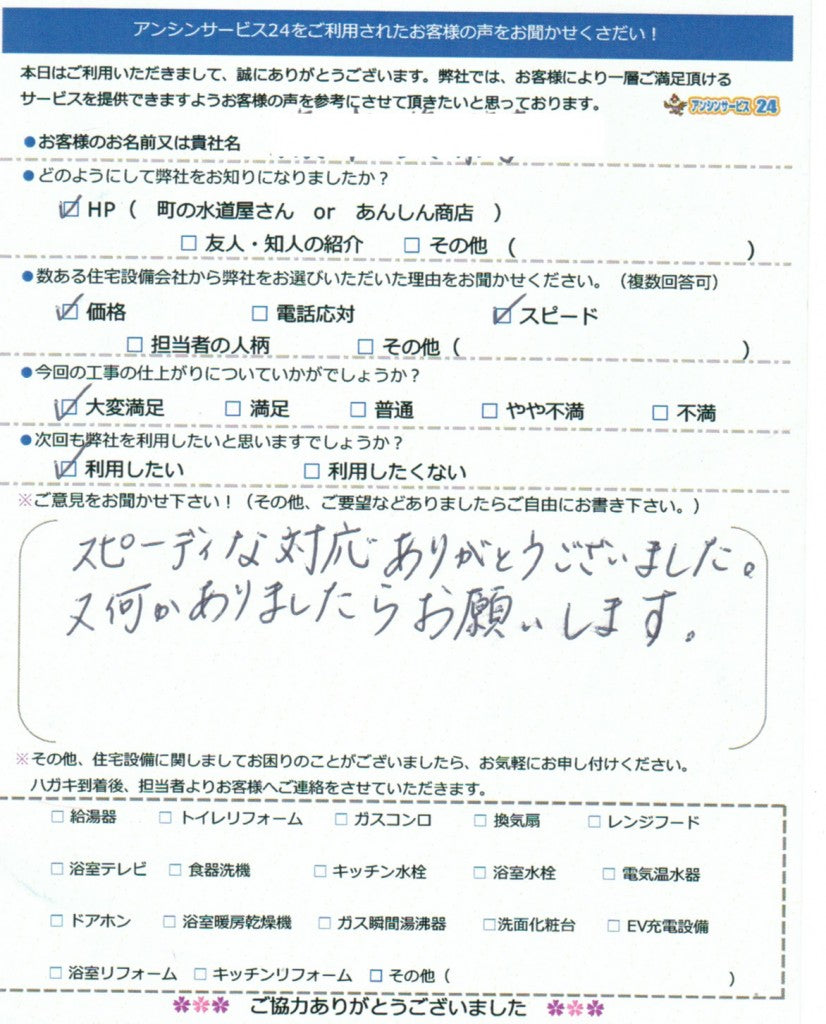 アンシンサービス24をご利用されたお客様の声をお聞かせくさだい！
本日はご利用いただきまして、誠にありがとうございます。弊社では、お客様により一層ご満足頂ける
サービスを提供できますようお客様の声を参考にさせて頂きたいと思っております。
アンシンサービス24
●お客様のお名前又は貴社名
●どのようにして弊社をお知りになりましたか？
☑ HP（　町の水道屋さん　or　あんしん商店　）
□ 友人・知人の紹介　□ その他　（　　　）
●数ある住宅設備会社から弊社をお選びいただいた理由をお聞かせください。（複数回答可）
☑ 価格　□ 電話応対　☑ スピード
□ 担当者の人柄　□ その他（　　　）
●今回の工事の仕上がりについていかがでしょうか？
☑ 大変満足　□ 満足　□ 普通　□ やや不満　□ 不満
●次回も弊社を利用したいと思いますでしょうか？
☑ 利用したい　□ 利用したくない
※ご意見をお聞かせ下さい！（その他、ご要望などありましたらご自由にお書き下さい。）
スピーディな対応ありがとうございました。
又何かありましたらお願いします。
※その他、住宅設備に関しましてお困りのことがございましたら、お気軽にお申し付けください。
ハガキ到着後、担当者よりお客様へご連絡をさせていただきます。
□ 給湯器　□ トイレリフォーム　□ ガスコンロ　□ 換気扇　□ レンジフード
□ 浴室テレビ　□ 食器洗機　□ キッチン水栓　□ 浴室水栓　□ 電気温水器
□ ドアホン　□ 浴室暖房乾燥機　□ ガス瞬間湯沸器　□洗面化粧台　□ EV充電設備
□ 浴室リフォーム　□ キッチンリフォーム　□ その他（　　　）
ご協力ありがとうございました